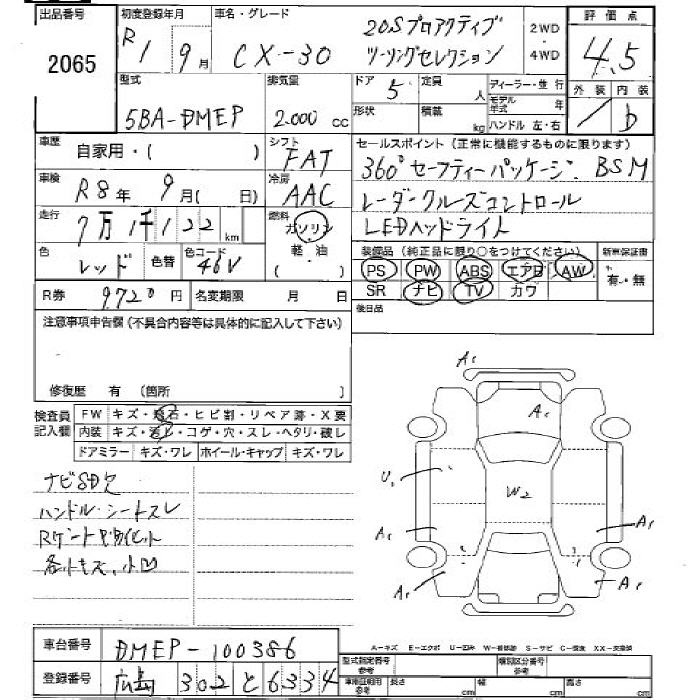 出品番号 初度登録年月 車名・グレード 評価点
2065 R1 9月 CX-30 20Sプロアクティブ 2WD 4.5
ツーリングセレクション 4WD
型式 排気量 ドア 定員 ディーラー・並行 外装 内装
5BA-DMEP 2.000 cc 5 人 モデル年式 年
形状 積載 kg ハンドル 左・右
車歴 自家用・( ) シフト FAT セールスポイント(正常に機能するものに限ります)
360°セーフティーパッケージ. BSM
車検 R8年 9月(日) 冷房 AAC レーダークルーズコントロール
走行 7万1千122km 燃料 ガソリン LEDヘッドライト
軽・油
( )
色 レッド 色替 色コード 46V
装備品(純正品に限り○をつけてください) 新車保証書
PS PW ABS エアB AW 有・無
SR ナビ TV カワ
R券 9720円 名変期限 月 日 後日品
注意事項申告欄(不具合内容等は具体的に記入して下さい)
修復歴 有(箇所 )
検査員記入欄 FW キズ・飛石・ヒビ割・リペア跡・X要
内装 キズ・汚レ・コゲ・穴・スレ・ヘタリ・破レ
ドアミラー キズ・ワレ ホイール・キャップ キズ・ワレ
ナビSD欠
ハンドル・シートスレ
各所キズ、小凹
A1
A1
U1
W2
A1 A1
A1 A1
車台番号 DMEP-100386
A-キズ E-エクボ U-凹み W-補修跡 S-サビ C-腐食 XX-交換済
登録番号 広島 302 と 6334
型式指定番号 参考 類別区分番号 参考
車庫証明用 参考 長さ cm 幅 cm 高さ cm